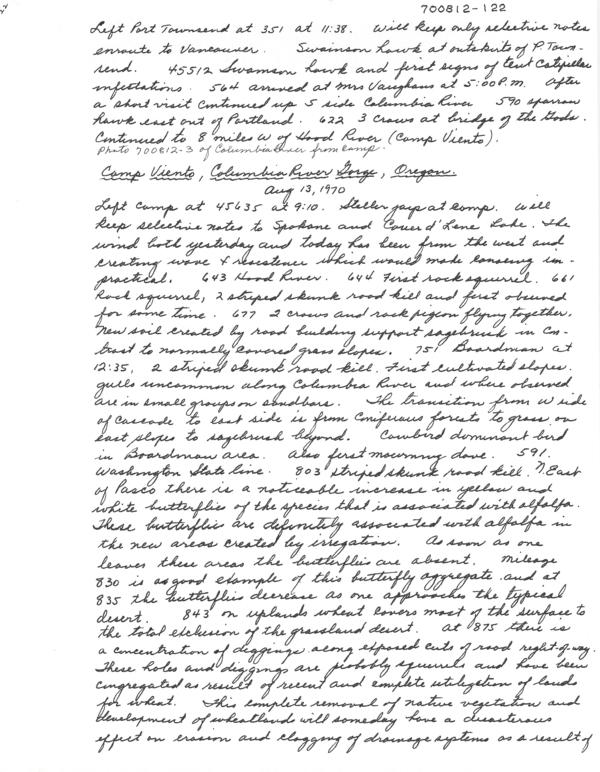 700812-122
Left Port Townsend at 351 at 11:38. Will keep only selective notes
enroute to Vancouver. Swainson hawk at outskirts of P. Town-
send. 45512 Swainson hawk and first signs of tent Catipillar
infestations. 564 arrived at Mrs Vaughans at 5:00 P.M. After
a short visit Continued up S side Columbia River 590 sparrow
hawk east out of Portland. 622 3 Crows at bridge of the Gods.
Continued to 8 miles W of Hood River (Camp Viento).
Photo 700812-3 of Columbia River from camp.
Camp Viento, Columbia River Gorge, Oregon.
Aug 13, 1970
Left Camp at 45635 at 9:10. Steller jays at Camp. Will
keep selective notes to Spokane and Couer d'Lene Lake. The
wind both yesterday and today has been from the west and
creating wave & resistence which would make canoeing im-
practical. 643 Hood River. 644 First rock squirrel. 661
Rock squirrel, 2 striped skunk road kill and first observed
for some time. 677 2 crows and rock pigeon flying together.
New soil created by road building support sagebrush in Con-
trast to normally covered grass slopes. 751 Boardman at
12:35, 2 striped skunk road kill. First cultivated slopes.
gulls uncommon along Columbia River and where observed
are in small groups on sandbars. The transition from W side
of Cascade to east side is from Coniferous forests to grass on
east slopes to sagebrush beyond. Cowbird dominant bird
in Boardman area. Also first mourning dove. 591.
Washington State line. 803 striped skunk road kill. N. East
of Pasco there is a noticeable increase in yellow and
white butterflies of the species that is associated with alfalfa.
These butterflies are definitely associated with alfalfa in
the new areas created by irregation. As soon as one
leaves these areas the butterflies are absent. Mileage
830 is as good example of this butterfly aggregate and at
835 the butterflies decrease as one approaches the typical
desert. 843 on uplands wheat covers most of the surface to
the total exclusion of the grassland desert. At 875 there is
a concentration of diggings along exposed cuts of road right-of-way.
These holes and diggings are probably squirrels and have been
congregated as result of recent and complete utilization of lands
for wheat. This complete removal of native vegetation and
development of wheatlands will someday have a disasterous
effect on erosion and clogging of drainage systems as a result of